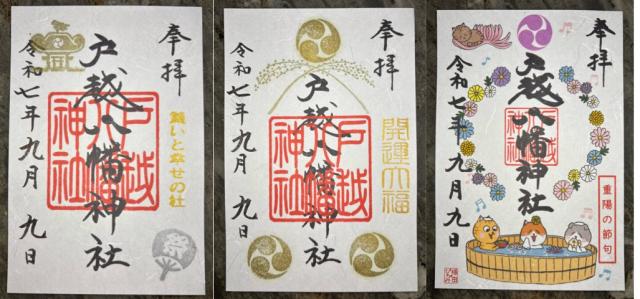 奉拝
戸越八幡神社
戸越
八幡
神社
と幸せの社
祭
令和七年九月 九日
奉拝
戸越八幡神社
戸越
八幡
神社
開運大福
令和七年九月 九日
奉拝
戸越八幡神社
戸越
八幡
神社
重陽の節句
令和七年九月 九日